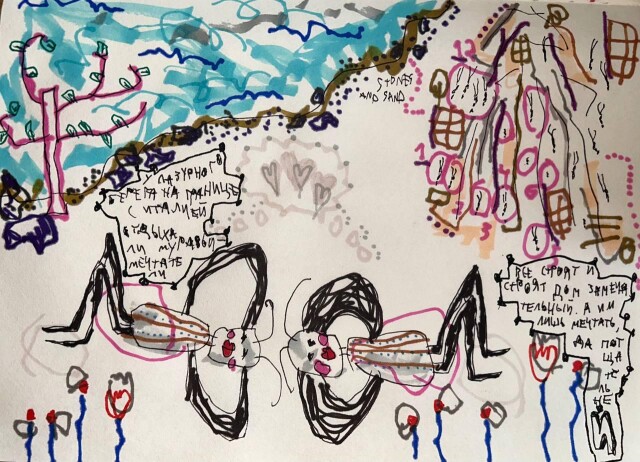 STONES
AND SAND
12
1
4
6
3
ЛАЗУРНОГО
БЕРЕГА НА ГРАНИЦЕ
С ИТАЛИЕЙ
ОТДЫХА
ЛИ МУРАВЬИ
МЕЧТАТЕ
ЛИ
ВСЕ СТРОЯТ И
СТРОЯТ ДОМ ЗАМЕЧА
ТЕЛЬНЫЙ. А ИМ
ЛИШЬ МЕЧТАТЬ
ДА ПОТ
ЩА
ТЕ
ЛЬ
НЕ
Й